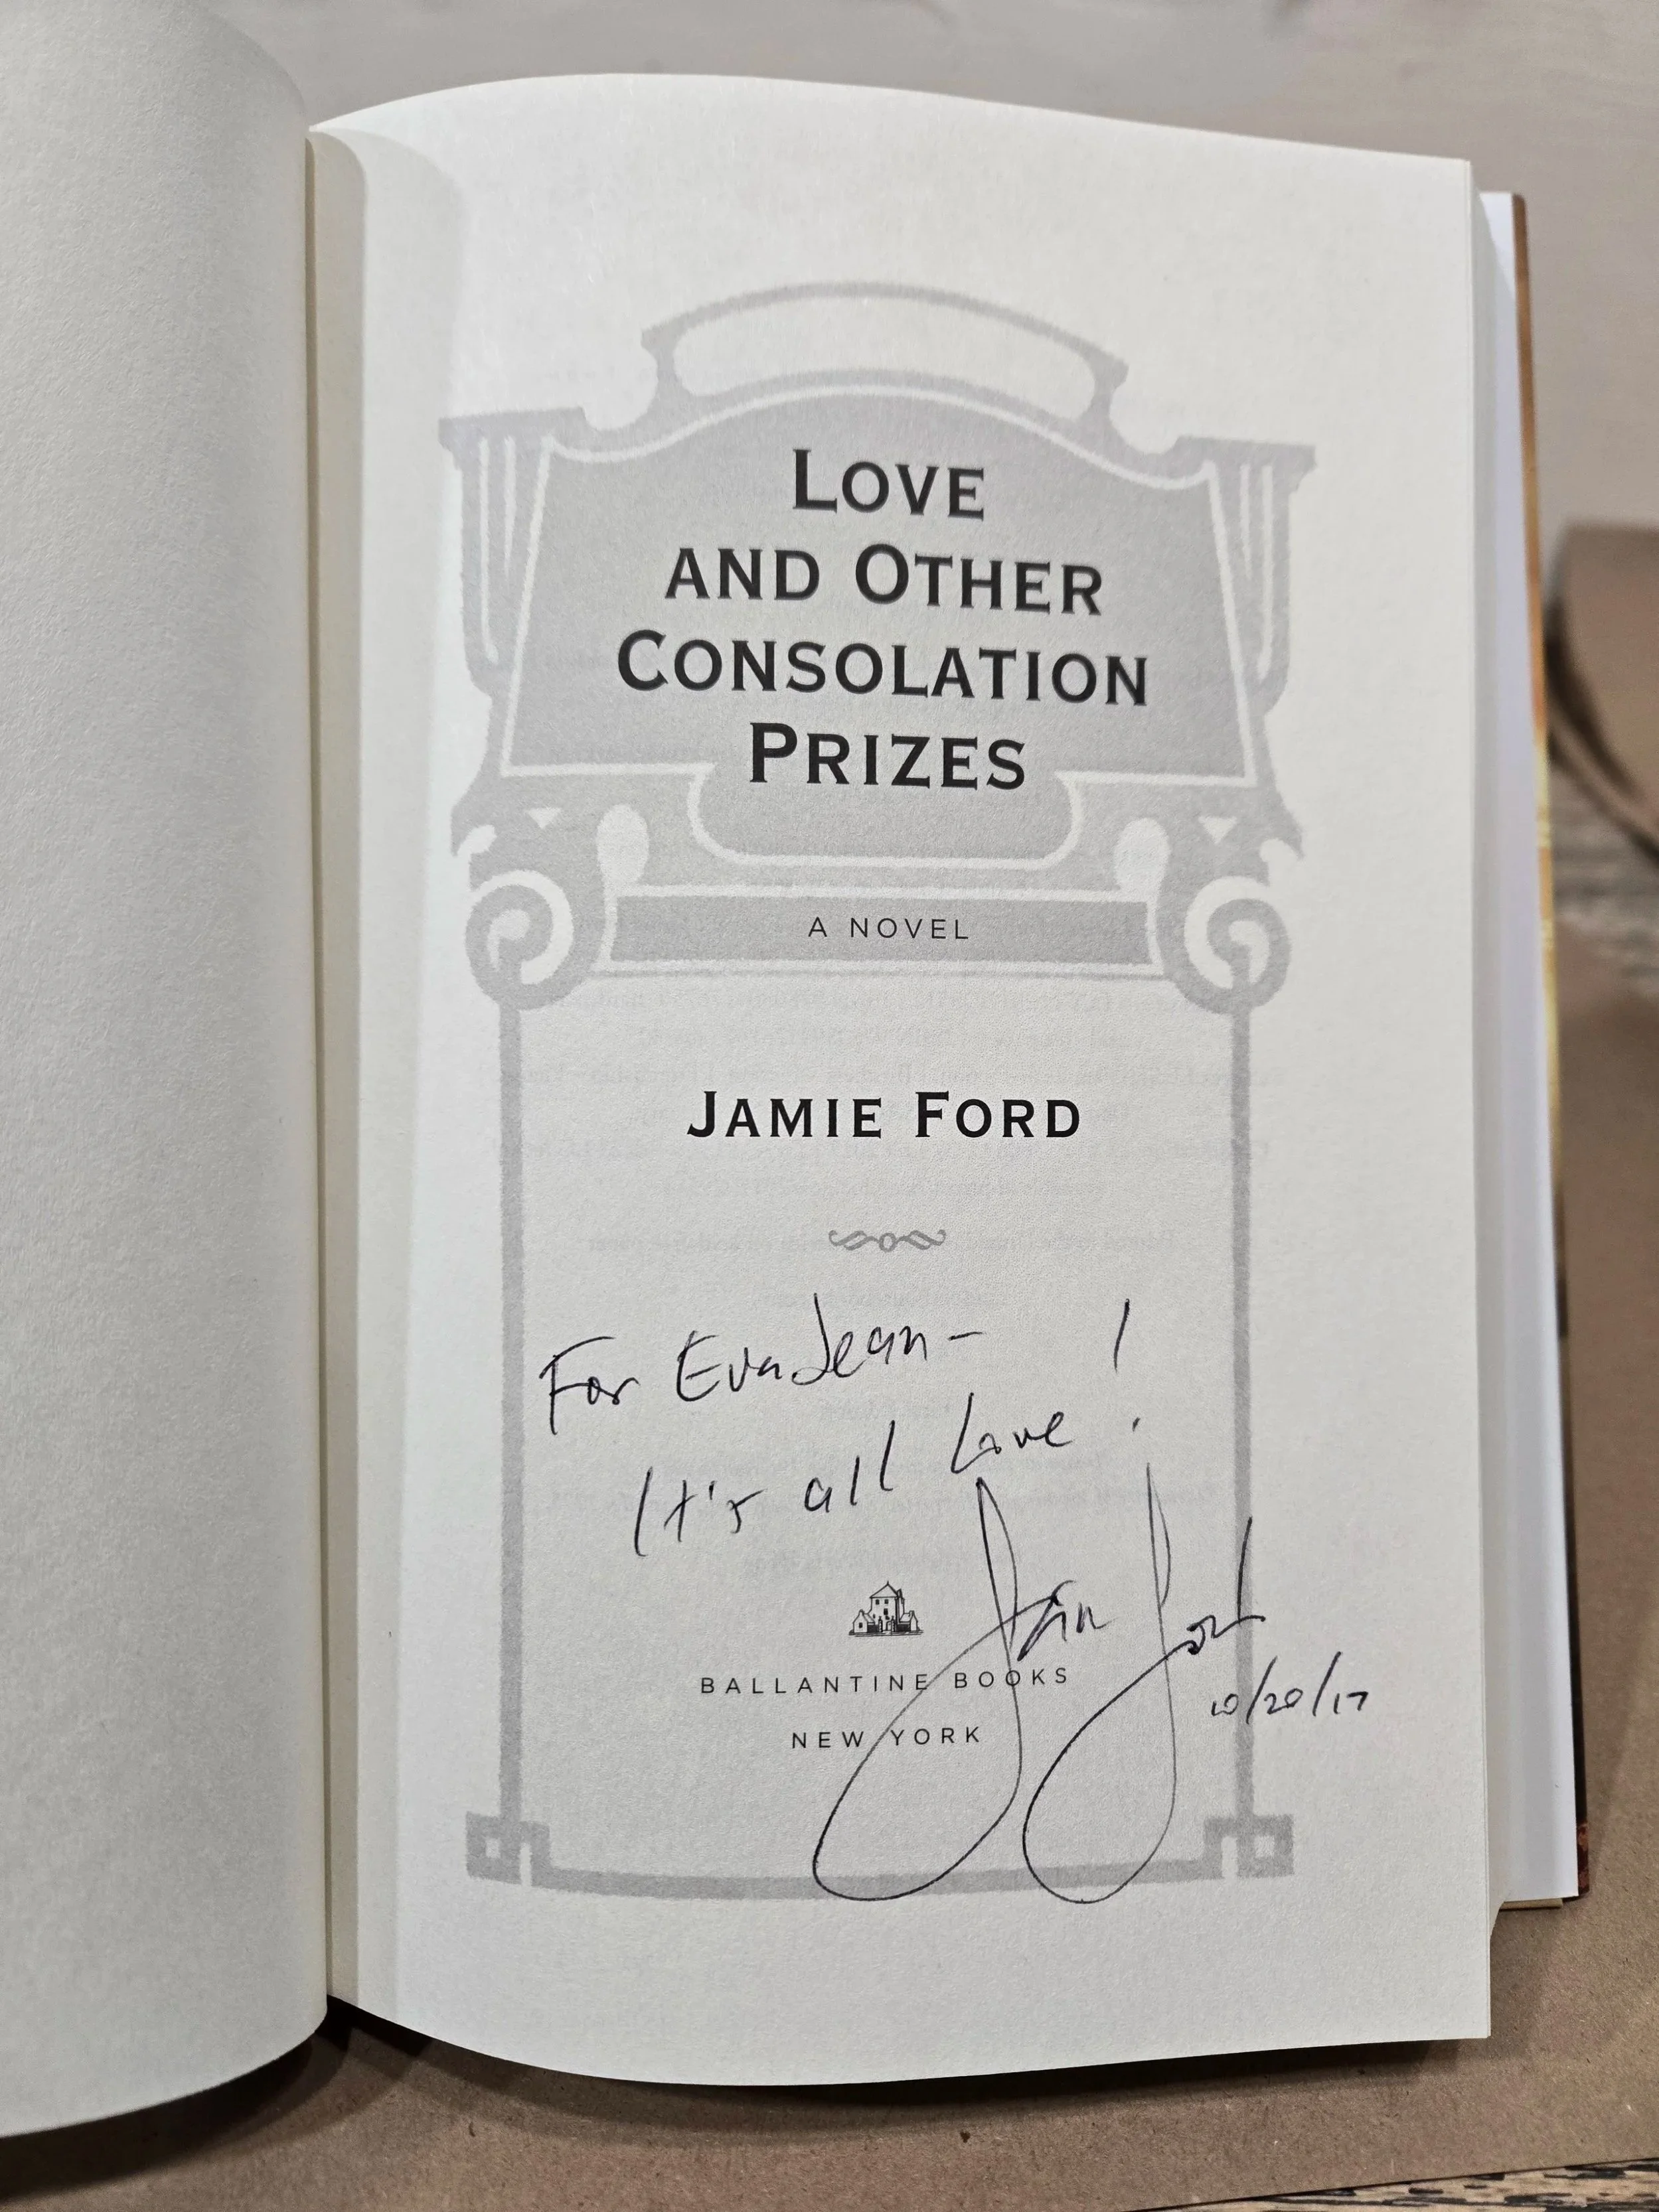 LOVE
AND OTHER
CONSOLATION
PRIZES
A NOVEL
JAMIE FORD
For EvaJean-
It's all Love!
Jamie Ford
10/20/17
BALLANTINE BOOKS
NEW YORK